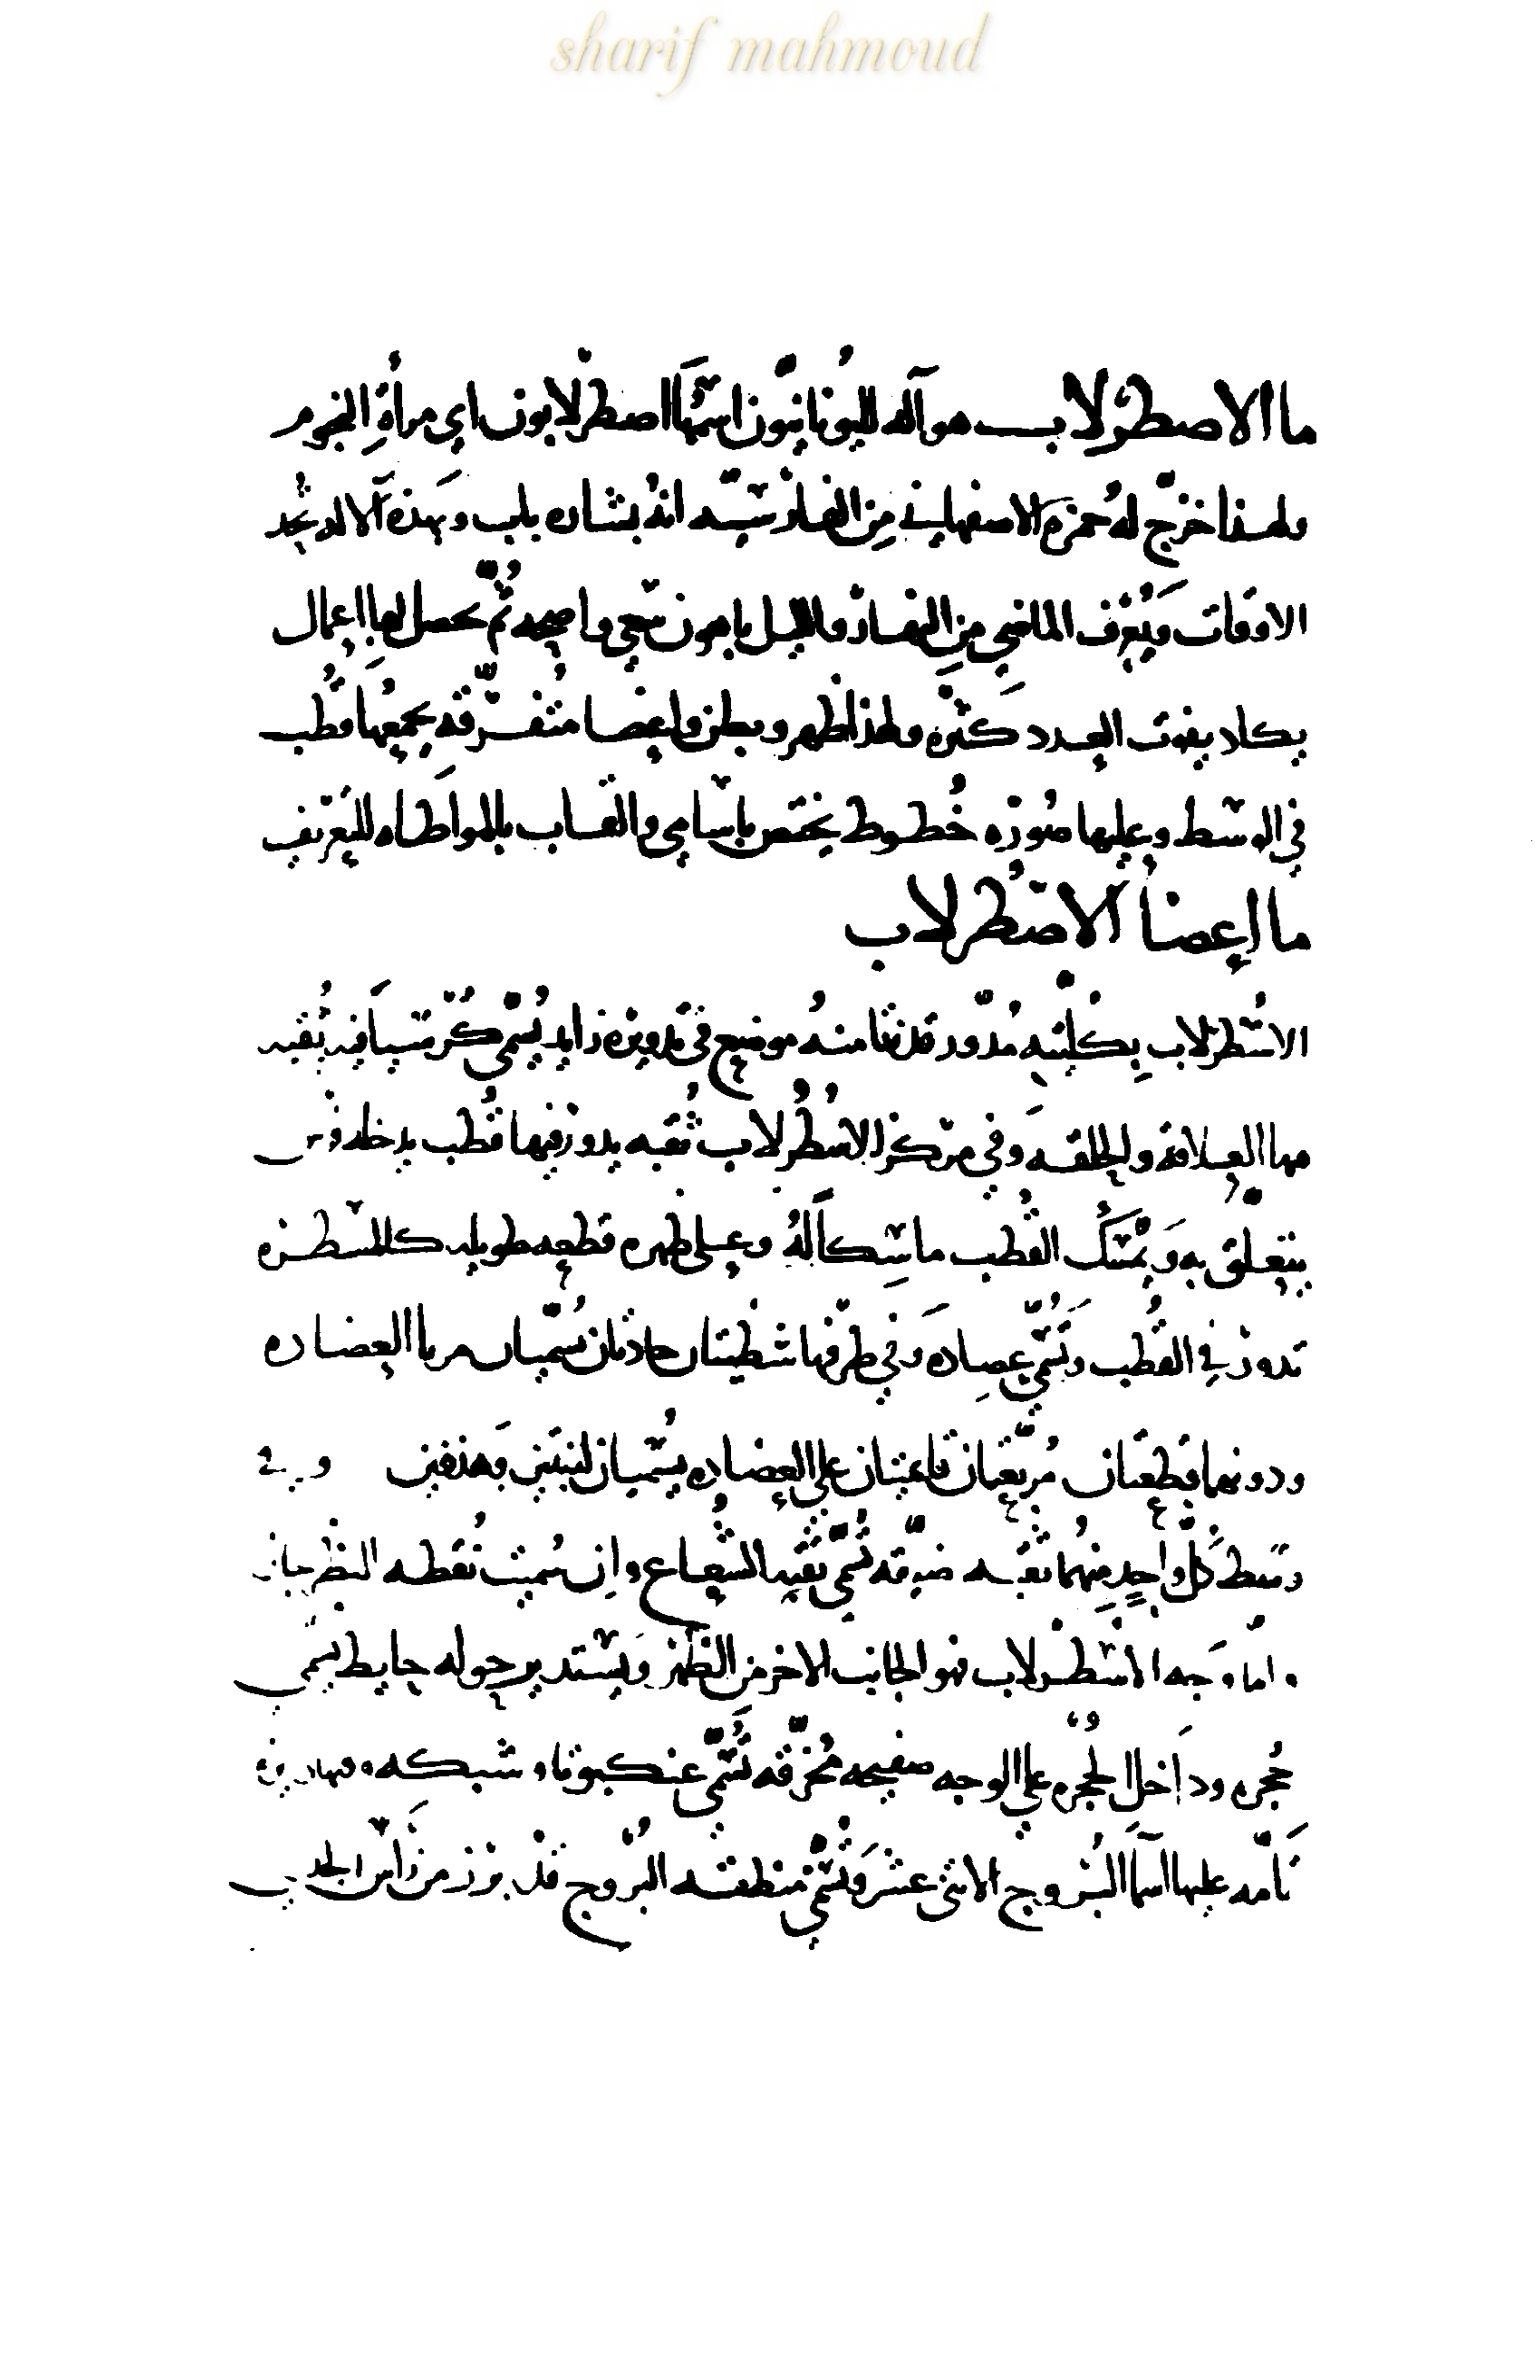 sharif mahmoud
ما الاصطرلاب هو آله لليونانيون اسمها اصطرلابون اي مرأة النجوم
ولهذا خرج له حمزه الاصفهاني من الفارسيه انه ستاره ياب وبهذه الاله تجد
الاوقات ويعرف الماضي من النهار والليل باهون سعي واصحه ثم يحصل لها اعمال
يكاد يفوت العدد كثره ولهذا ظهر وبطن واعضا متفرقه يجمعها قطب
في الوسط وعليها صوره خطوط يختص باسامي والقاب بالمواطاه للتعريف
ما اعضا الاصطرلاب
الاسطرلاب بكليته مدور قد نتا منه موضع في تدويره زايد يسمى كرسيا فيه ثقبه
العلاقه والحلقه وفي مركز الاسطرلاب ثقبه يدور فيها قطب يدخله فرس
يتعلق به ويمسك القطب ماسكا له وعلى ظهره قطعه طويله كالمسطره
تدور في القطب وتسمى عضاده وفي طرفها شطيتان حادتان تسميان مريا العضاده
ودونهما قطعتان مربعتان قاعيتان على العضاده يسميان لبنتين وهدفين وفي
وسط كل واحد منهما ثقبه ضيقه تسمى ثقبه الشعاع وان سميت نقطه النظر جاز
واما وجه الاسطرلاب فهو الجانب الاخر من الظهر ويستدير حوله حايط يسمى
حجره وداخل الحجره على الوجه صفيحه مخرقه تسمى عنكبوتا وشبكه وفيها دايره
تامه عليها اسما البروج الاثنى عشر وتسمى منطقه البروج قد برز من راس الجدي